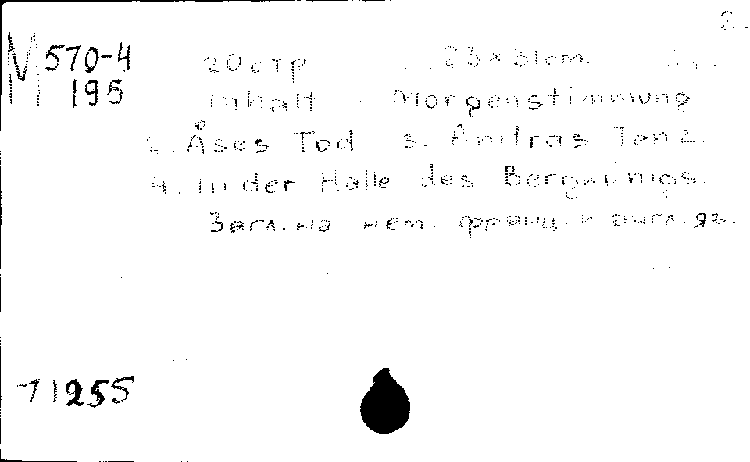 2.
M 570-4
195
20стр 23×31cm.
Inhalt Morgenstimmung
2. Åses Tod 3. Anitras Tanz.
4. In der Halle des Bergkönigs.
Загл. на нем. франц. и англ. яз.
71255